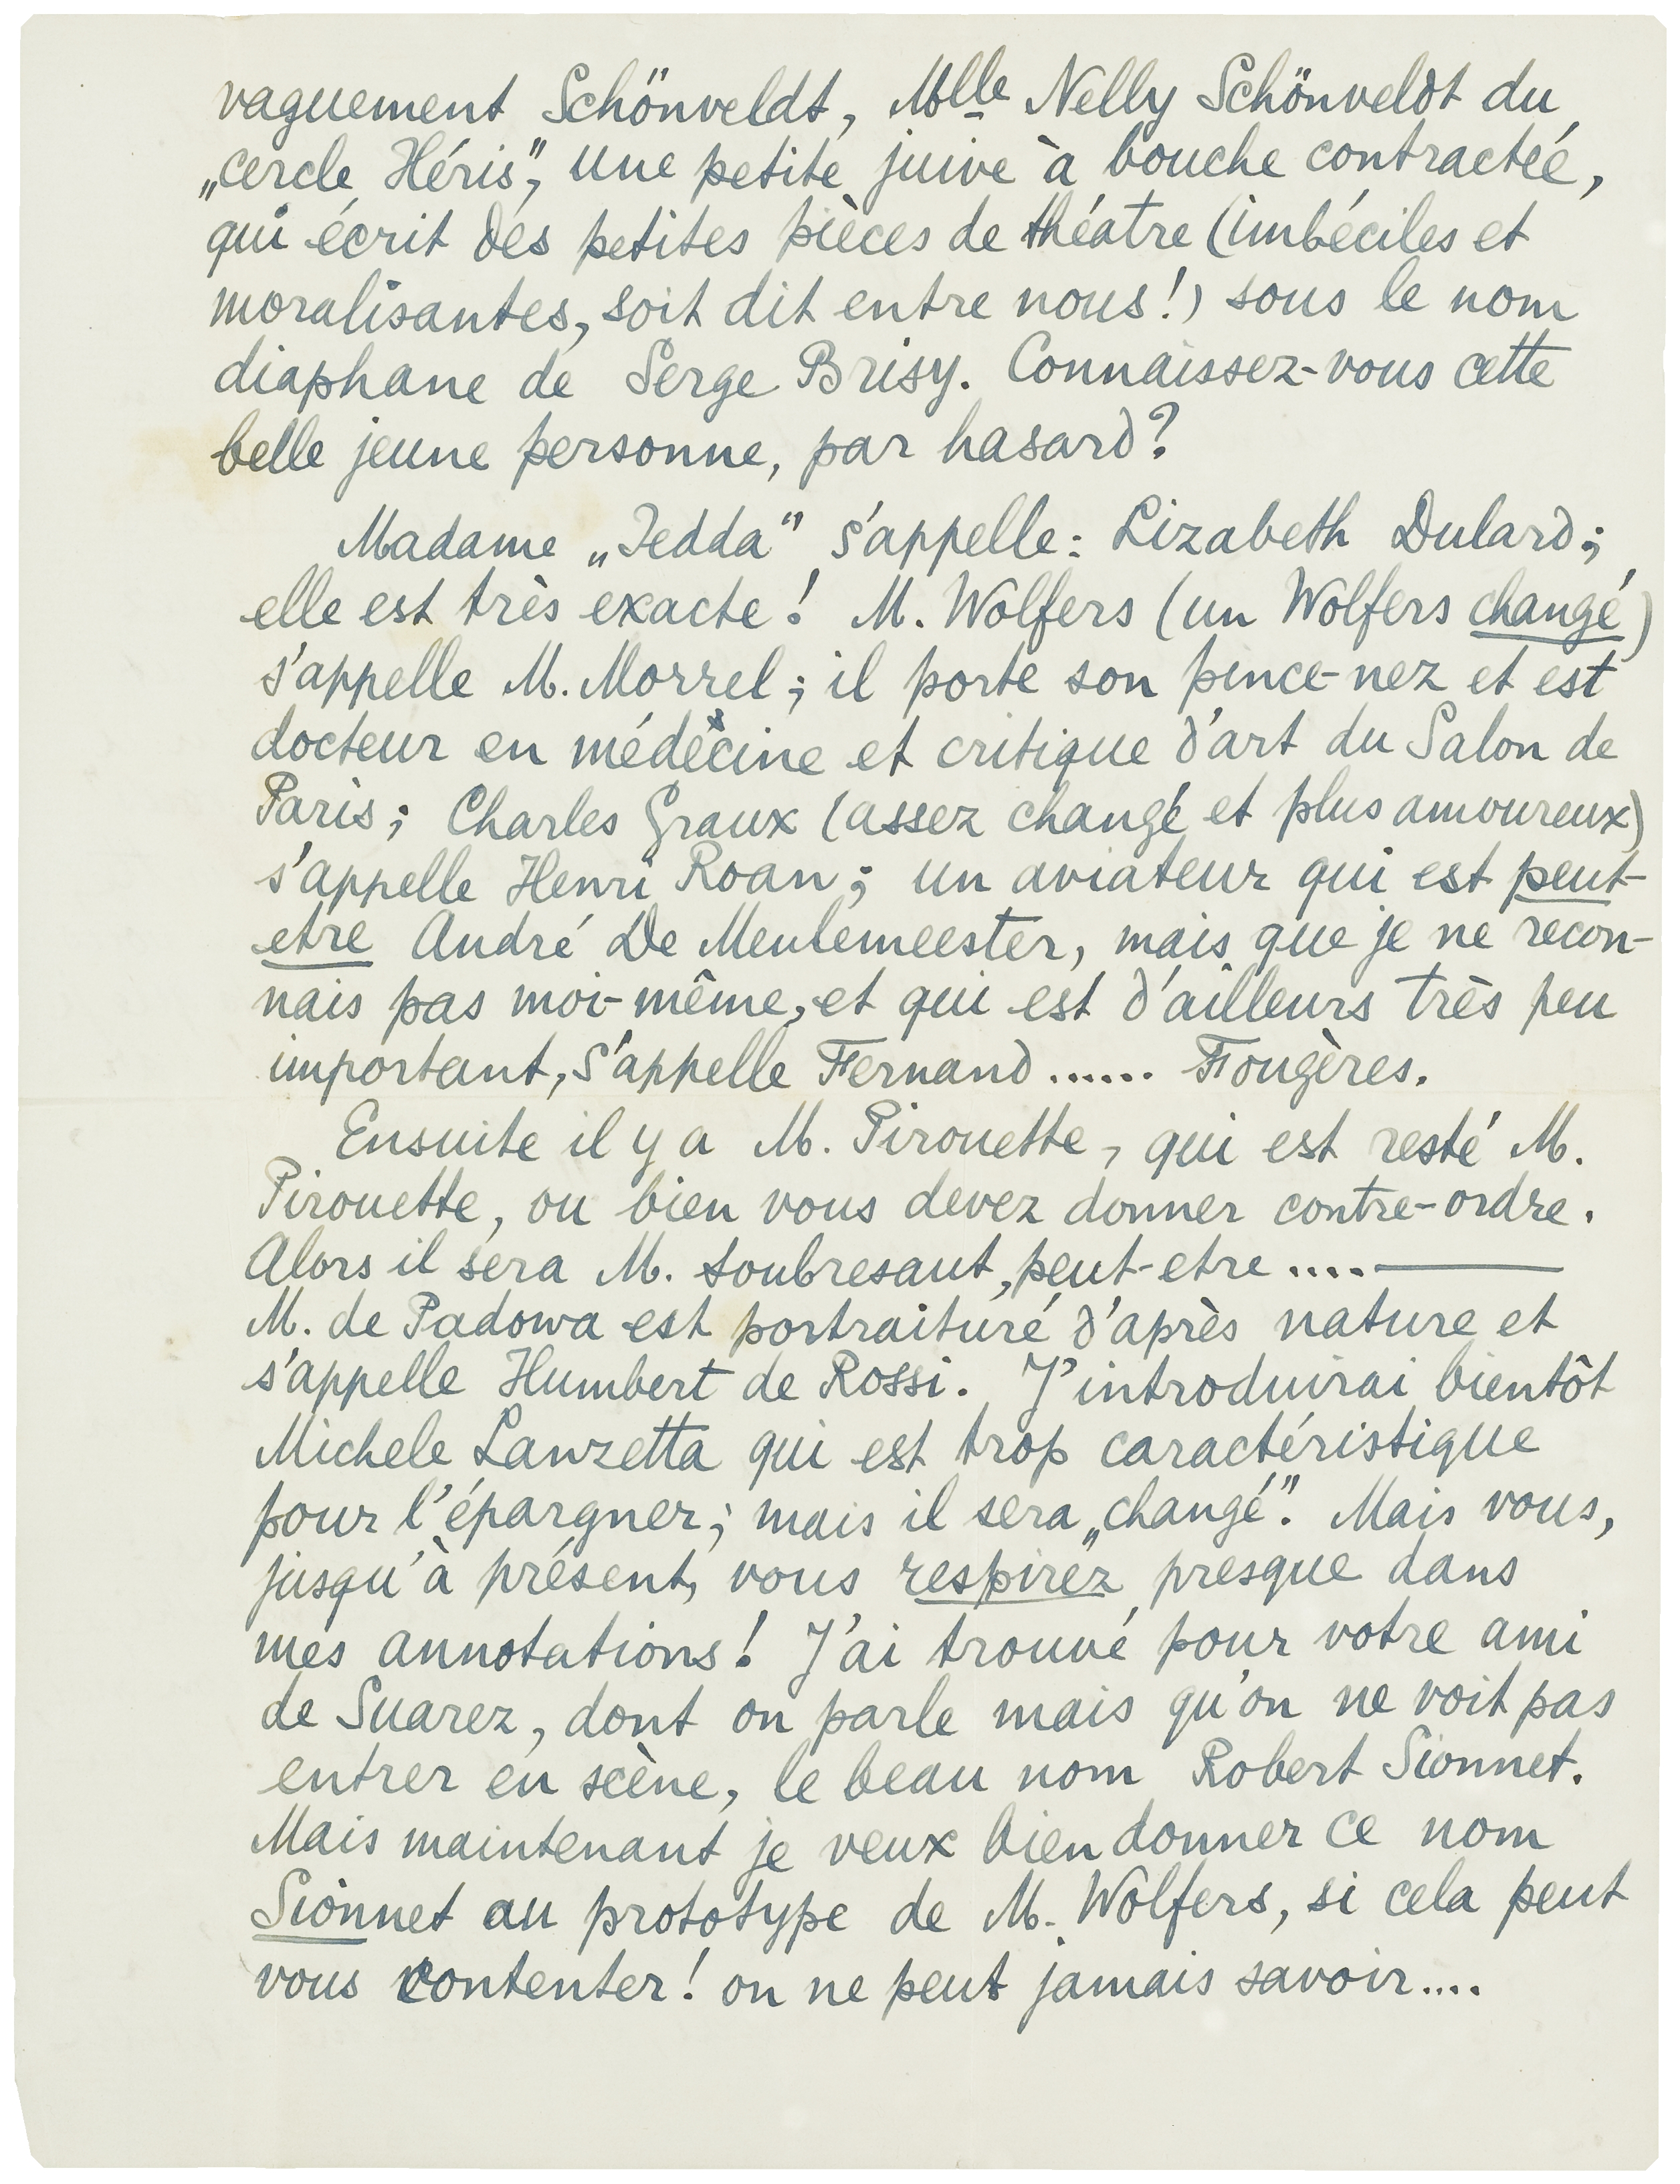 vaguement Schönveldt, Mlle Nelly Schönveldt du
„cercle Héris", une petite juive à bouche contractée,
qui écrit des petites pièces de théatre (imbéciles et
moralisantes, soit dit entre nous!) sous le nom
diaphane de Serge Brisy. Connaissez-vous cette
belle jeune personne, par hasard?
Madame „Jedda" s'appelle: Lizabeth Dulard;
elle est très exacte! M. Wolfers (un Wolfers changé)
s'appelle M. Morrel; il porte son pince-nez et est
docteur en médecine et critique d'art du Salon de
Paris; Charles Graux (assez changé et plus amoureux)
s'appelle Henri Roan; un aviateur qui est peut-
etre André De Meulemeester, mais que je ne recon-
nais pas moi-même, et qui est d'ailleurs très peu
important, s'appelle Fernand...... Fougères.
Ensuite il y a M. Pirouette, qui est resté M.
Pirouette, ou bien vous devez donner contre-ordre.
Alors il sera M. Soubresaut, peut-etre....—
M. de Padowa est portraituré d'après nature et
s'appelle Humbert de Rossi. J'introduirai bientôt
Michele Lanzetta qui est trop caractéristique
pour l'épargner; mais il sera „changé". Mais vous,
jusqu'à présent, vous respirez presque dans
mes annotations! J'ai trouvé pour votre ami
de Suarez, dont on parle mais qu'on ne voit pas
entrer en scène, le beau nom Robert Sionnet.
Mais maintenant je veux bien donner ce nom
Sionnet au prototype de M. Wolfers, si cela peut
vous contenter! on ne peut jamais savoir....